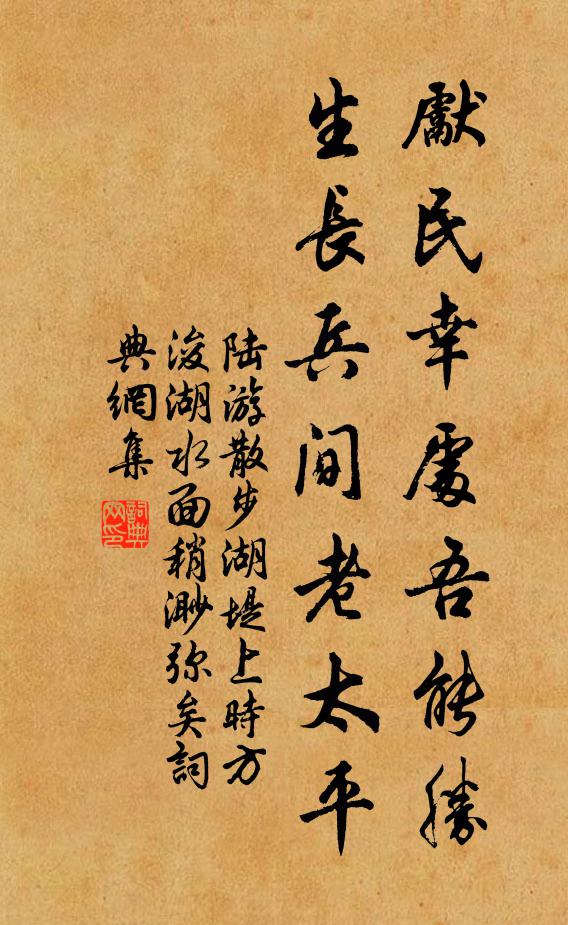 獻民幸處吾能勝
生長兵間老太平
陆游散步湖堤上時方
浚湖水面稍渺弥矣詞
典網集
詞典
网印